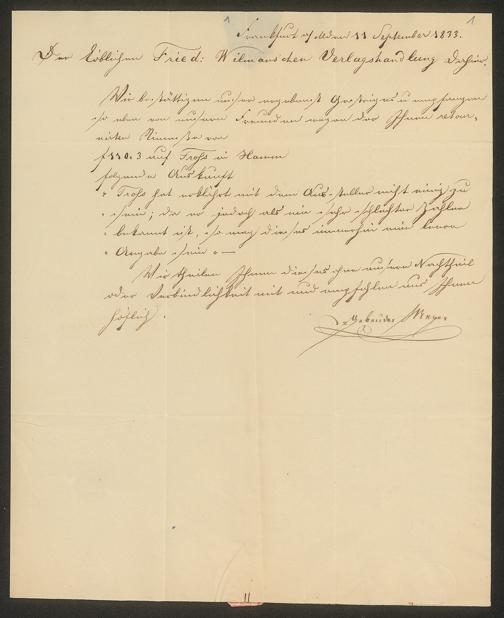 1 1
Frankfurt a/M den 11 September 1833.
Der Löblichen Fried: Wilmans'chen Verlagshandlung Dahier.
Wir bestättigen unser ergebenst Gestriges u empfangen
so eben von unsern Freunden wegen der Ihnen retour-
nirten Rimesse von
f 110.3 auf Trohs in Hamm
folgende Auskunft
" Trohs hat erklährt mit dem Aussteller nicht einig zu
" sein; da er jedoch als ein sehr schlechter Zahler
" bekannt ist, so mag dieses immerhin nur leere
" Angabe sein " —
Wir theilen Ihnen dieses ohne unsern Nachtheil
oder Verbindlichkeit mit und empfehlen uns Ihnen
höflich.
Gebruder Meyer